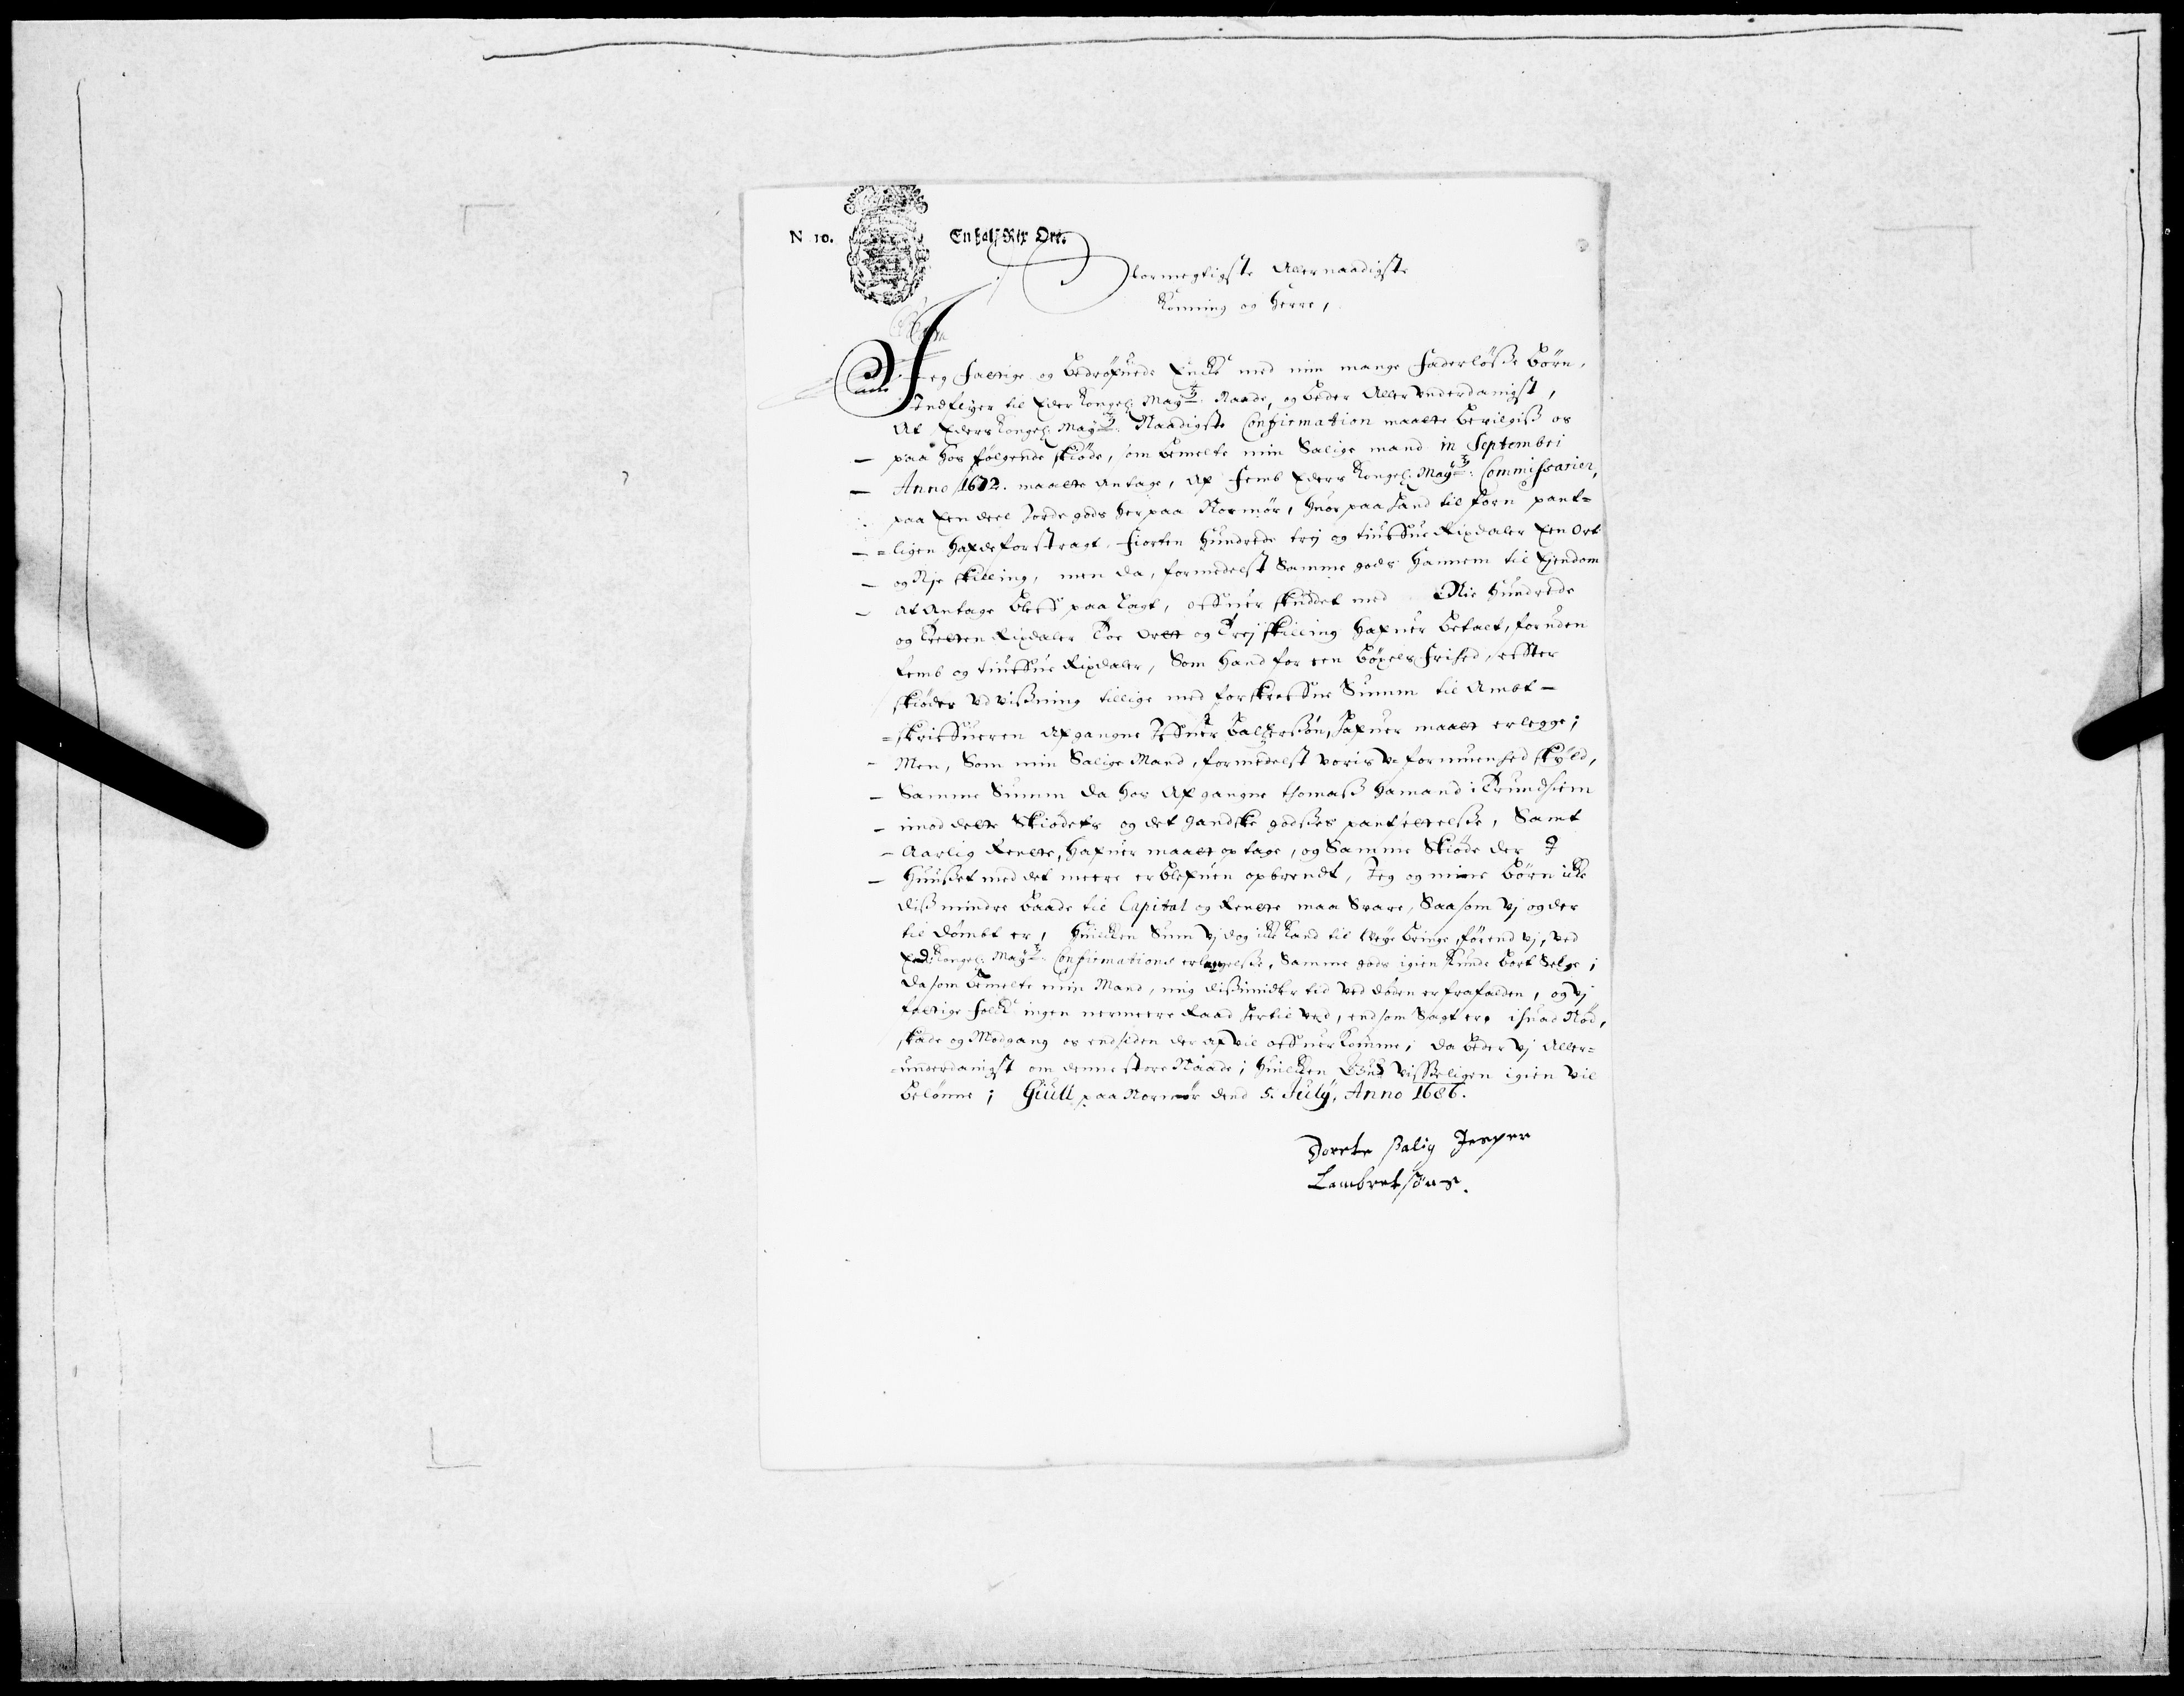 N 10. En halff Rix Ort.
Stormegtigste Allernaadigste
Konning og Herre,
Jeg fattige og bedröfuede Encke med min mange faderlösse Börn,
Indflyer til Eder Kongel: May:ts Naade, og beder Aller underdanigst,
At Eders Kongel: May:ts Naadigste Confirmation maatte bevilgiss os
paa hos fölgende skiöde, som bemelte min Salige mand in Septembri
Anno 1672. maatte Antage, Af femb Eders Kongel: May:ts Commissarier,
paa Een deel Jorde gods her paa Normör, huor paa hand til forn pant-
ligen hafde forstragt, fiorten Hundrede trej og tiuffue Rixdaler Een Ort
og Nje skilling, men da, formedelst Samme gods hannem til Ejendom
at Antage bleff paa lagt, offuer skuddet med Nie Hundrede
og Tretten Rixdaler Toe Ortt og Trej skilling hafuer betalt, foruden
femb og tiuffue Rixdaler, Som hand for een böxels frihed, effter
skiödes Ud vissning tillige med forskreffne Summ til Ambt-
skriffueren Afgangne Iffuer Baltzersön, hafuer maatt erlegge;
Men, Som min Salige Mand, formedelst voris Ue formuenhed skyld,
Samme Summ da hos Afgangne Thomass Hamand i Trundhiem
imod dette Skiödets og det gandske godsses pantsettelsse, Samt
Aarlig Rentte, hafuer maatt optage, og Samme Skiöde der I
Huusset med det meere er blefuen opbrendt, Jeg og mine Börn icke
diss mindre baade til Capital og Rentte maa Svare, Saa som Vj og der
til dömbt er, Huilcken Sum Vj dog icke kand til Veye bringe, förend Vj, ved
Eders Kongel: May:ts Confirmations erlangelsse, Samme gods igien kunde bort Selge;
da som bemelte min Mand, mig dissimidler tid ved döden er frafalden, og Vj
fattige folck ingen nermeere Raad her til ved, end som Sagt er, ihuad Nöd,
skade og Modgang os end siden der af vil offuer komme, da beder Vj Aller-
underdanigst om denne store Naade; Huilcken Gud Visseligen igien vil
belönne; Giull paa Normör dend 5. July, Anno 1686.
Dorete Salig Jesper
Lambretsöns.